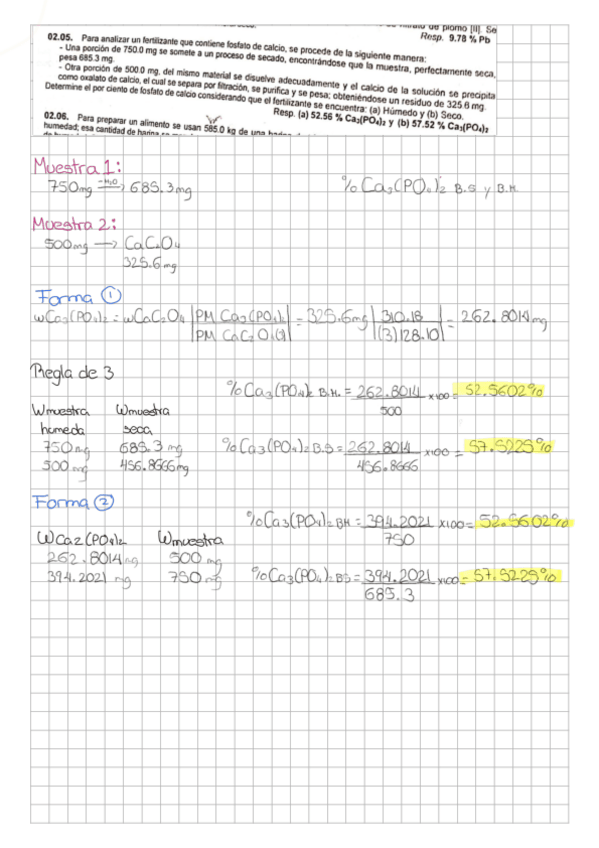 de plomo [II]. Se
Resp. 9.78 % Pb
02.05. Para analizar un fertilizante que contiene fosfato de calcio, se procede de la siguiente manera:
- Una porción de 750.0 mg se somete a un proceso de secado, encontrándose que la muestra, perfectamente seca,
pesa 685.3 mg.
- Otra porción de 500.0 mg, del mismo material se disuelve adecuadamente y el calcio de la solución se precipita
como oxalato de calcio, el cual se separa por filtración, se purifica y se pesa; obteniéndose un residuo de 325.6 mg.
Determine el por ciento de fosfato de calcio considerando que el fertilizante se encuentra: (a) Húmedo y (b) Seco.
Resp. (a) 52.56 % Ca₃(PO₄)₂ y (b) 57.52 % Ca₃(PO₄)₂
02.06. Para preparar un alimento se usan 585.0 kg de una harina
humedad; esa cantidad de harina se
Muestra 1:
750mg -H₂O→ 685.3mg
% Ca₃(PO₄)₂ B.S y B.H.
Muestra 2:
500mg → CaC₂O₄
325.6mg
Forma ①
wCa₃(PO₄)₂ = wCaC₂O₄ |PM Ca₃(PO₄)₂ / PM CaC₂O₄(3)| = 325.6mg |310.18 / (3)128.10| = 262.8014mg
Regla de 3
%Ca₃(PO₄)₂ B.H. = 262.8014 / 500 x100 = 52.5602%
Wmuestra Wmuestra
humeda seca
750mg 685.3mg
500mg 456.8666mg
%Ca₃(PO₄)₂ B.S = 262.8014 / 456.8666 x100 = 57.5225%
Forma ②
%Ca₃(PO₄)₂ BH = 394.2021 / 750 x100 = 52.5602%
WCa2(PO₄)₂ Wmuestra
262.8014mg 500mg
394.2021 mg 750mg
%Ca₃(PO₄)₂ BS = 394.2021 / 685.3 x100 = 57.5225%